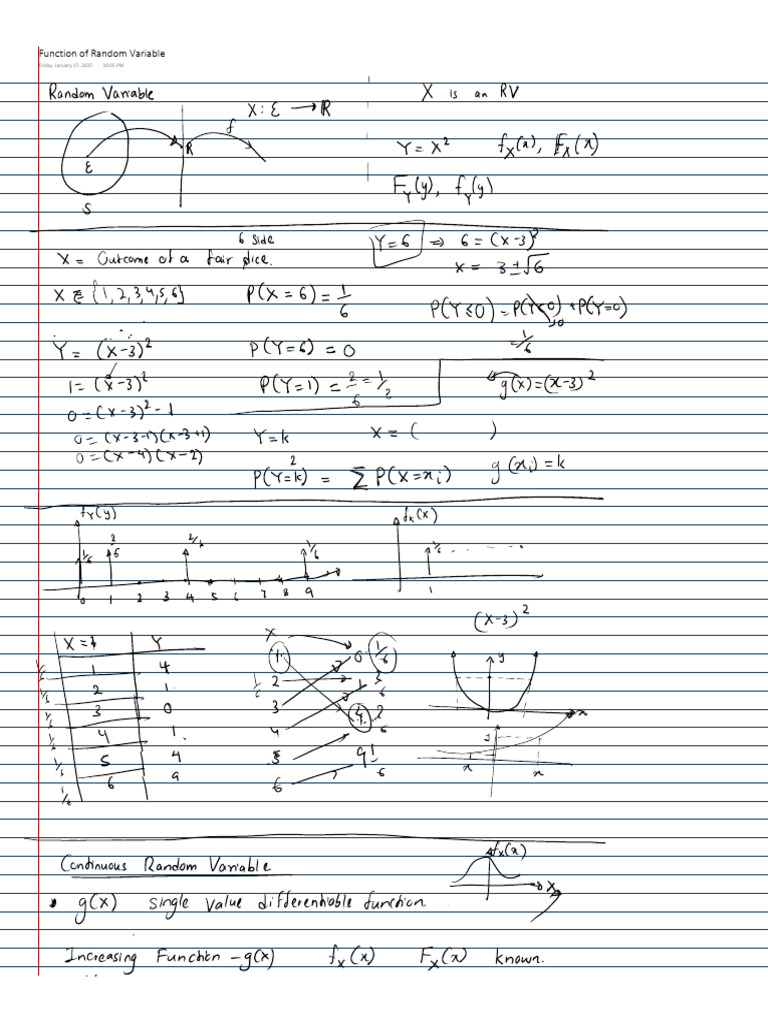 Function of Random Variable
Friday, January 17, 2025 10:05 PM
Random Variable
X is an RV
X : Ɛ → R
f
R
Ɛ
S
Y = X²
f_X(x), F_X(x)
F_Y(y), f_Y(y)
6 side
X = Outcome of a fair dice.
Y=6 ⇒ 6 = (x-3)²
x = 3 ± √6
X ∈ {1,2,3,4,5,6}
P(X=6) = 1/6
P(Y≤0) = P(Y<0) + P(Y=0)
0
1/6
Y = (X-3)²
P(Y=6) = 0
1 = (X-3)²
P(Y=1) = 2/6 = 1/2
g(x) = (x-3)²
0 = (X-3)² - 1
0 = (X-3-1)(X-3+1)
0 = (X-4)(X-2)
Y=k
X = ( )
P(Y=k) = Σ P(X=x_i)
2
g(x_i) = k
f_Y(y)
1/6 2/6 2/6 1/6
0 1 2 3 4 5 6 7 8 9
f_X(x)
1/6
1
(X-3)²
X Y
1/6 1 4
1/6 2 1
1/6 3 0
1/6 4 1
1/6 5 4
1/6 6 9
X
1 0 1/6
1/6 2 1
3 4 2/6
4 9 1/6
5
6
y
x
y
x x
Continuous Random Variable
f_X(x)
x
• g(x) single value differentiable function
Increasing Function - g(x) f_X(x) F_X(x) known.